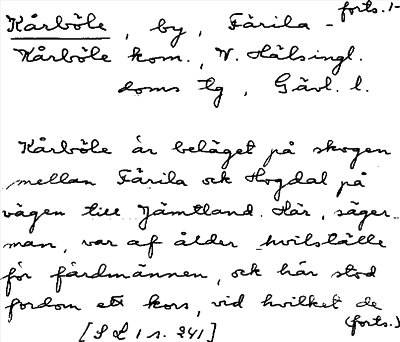 forts. 1-
Kårböle, by, Färila -
Kårböle kom., V. Hälsingl.
doms tg, Gävl. l.
Kårböle är beläget på skogen
mellan Färila och Hogdal på
vägen till Jämtland. Här, säger
man, var af ålder hvilställe
för färdmännen, och här stod
fordom ett kors, vid hvilket de
(forts.)
[S L 1 s. 241]